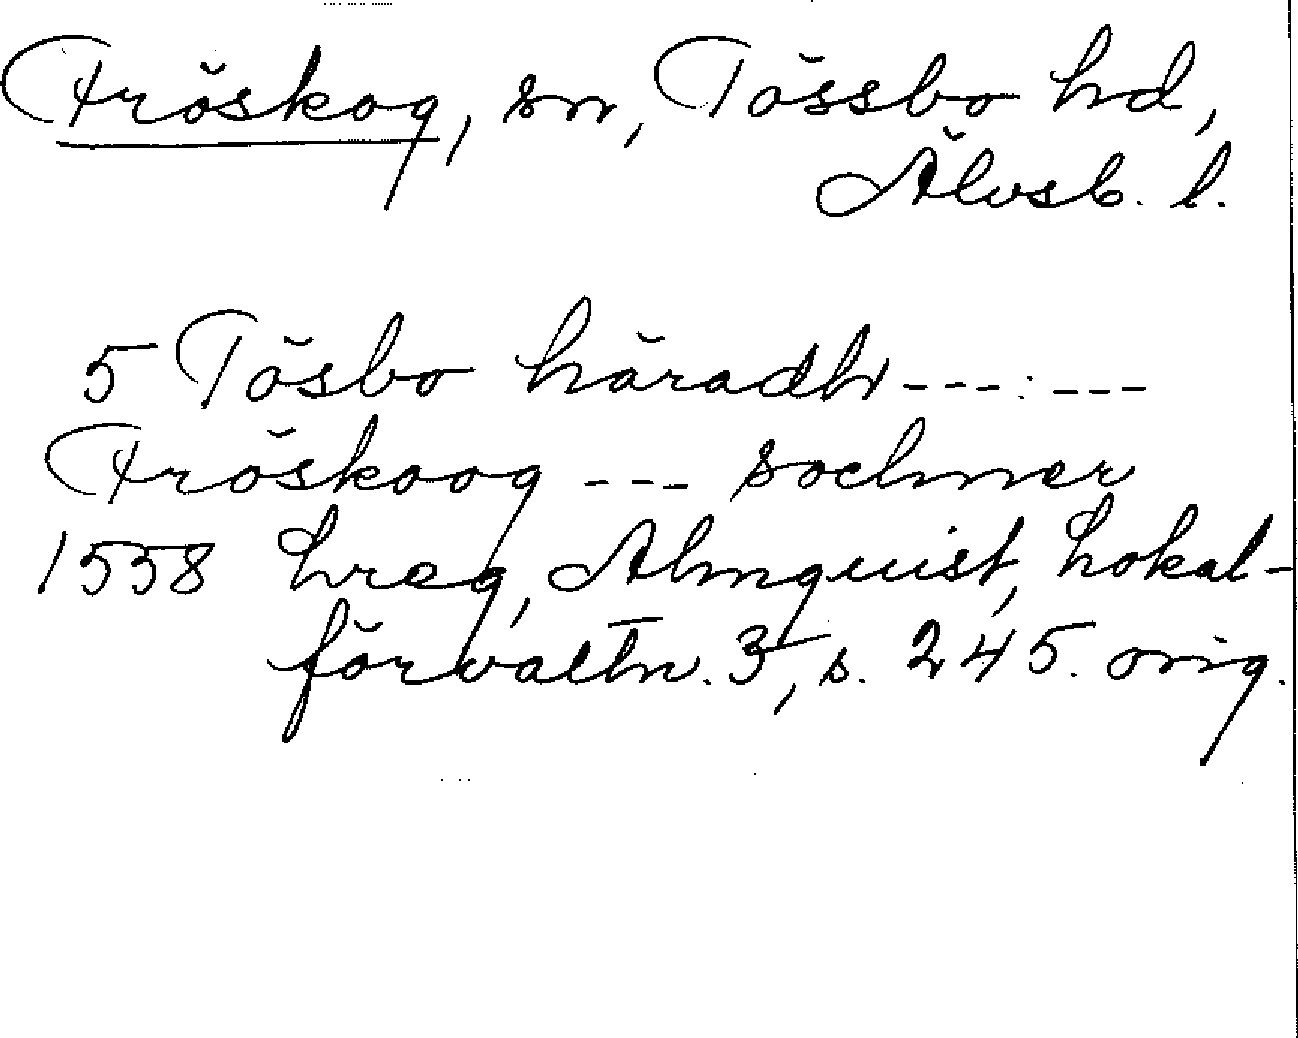 Fröskog, sn, Tössbo hd,
Älvsb. l.
5 Tösbo häradh ---:---
Fröskoog --- sochner
1558 Lreg, Almquist, Lokal-
förvaltn. 3, s. 245. orig.